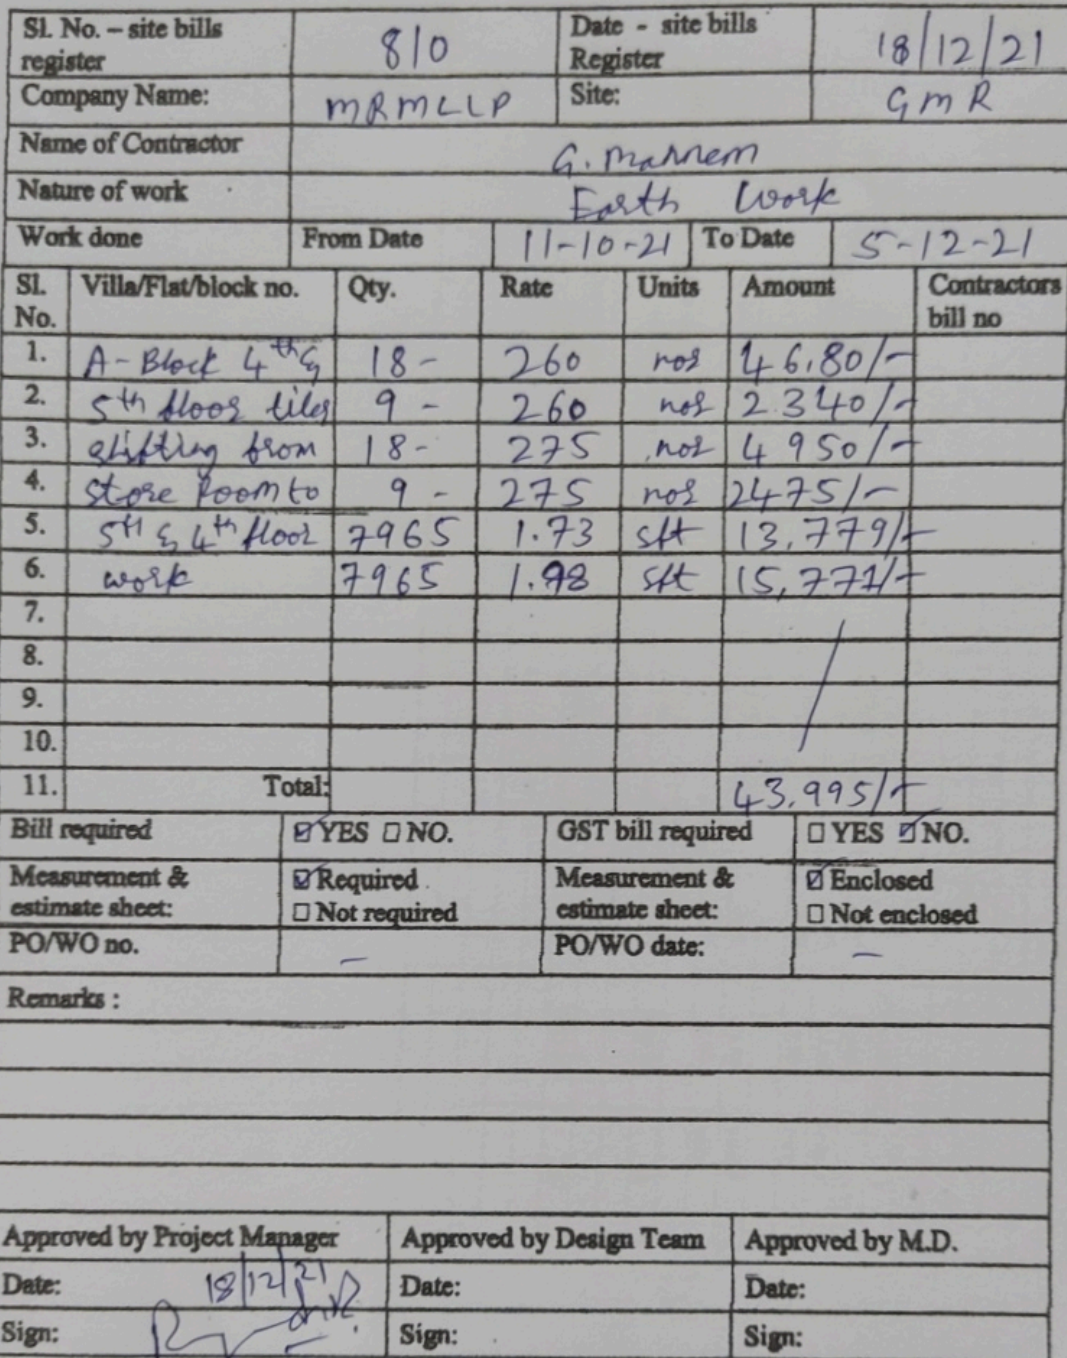 Sl. No. – site bills register 810 Date - site bills Register 18/12/21
Company Name: MRMLLP Site: GMR
Name of Contractor G. Mannem
Nature of work Earth Work
Work done From Date 11-10-21 To Date 5-12-21
Sl. No. Villa/Flat/block no. Qty. Rate Units Amount Contractors bill no
1. A-Block 4th & 18- 260 nos 46,80/-
2. 5th floor tiles 9 - 260 nos 2340/-
3. shifting from 18- 275 nos 4950/-
4. store Room to 9 - 275 nos 2475/-
5. 5th & 4th floor 7965 1.73 sft 13,779/-
6. work 7965 1.98 sft 15,771/-
7.
8.
9.
10.
11. Total: 43,995/-
Bill required ☑ YES ☐ NO. GST bill required ☐ YES ☑ NO.
Measurement & estimate sheet: ☑ Required ☐ Not required Measurement & estimate sheet: ☑ Enclosed ☐ Not enclosed
PO/WO no. – PO/WO date: –
Remarks :
Approved by Project Manager Approved by Design Team Approved by M.D.
Date: 18/12/21 Date: Date:
Sign: Sign: Sign: